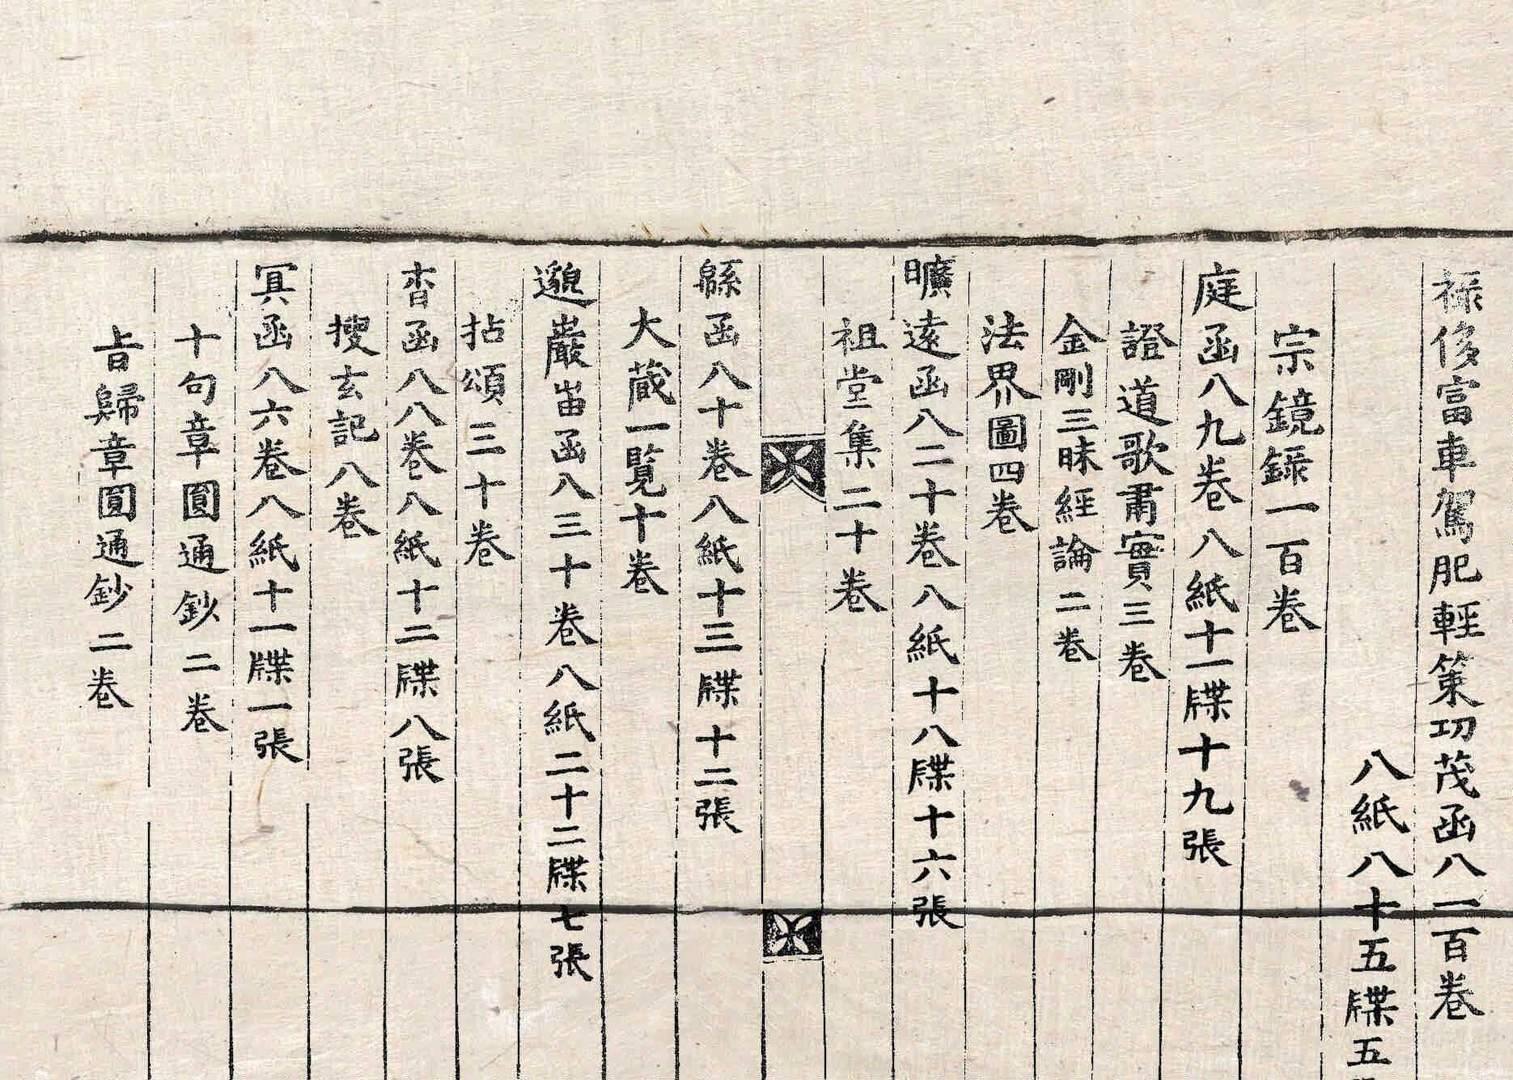 祿侈富車駕肥輕策功茂函入一百卷
入紙八十五牒五
宗鏡錄一百卷
庭函入九卷入紙十一牒十九張
證道歌事實三卷
金剛三昧經論二卷
法界圖四卷
曠遠函入二十卷入紙十八牒十六張
祖堂集二十卷
緜函入十卷入紙十三牒十二張
大藏一覽十卷
邈巖峀函入三十卷入紙二十二牒七張
拈頌三十卷
杳函入八卷入紙十二牒八張
搜玄記八卷
冥函入六卷入紙十一牒一張
十句章圓通鈔二卷
旨歸章圓通鈔二卷